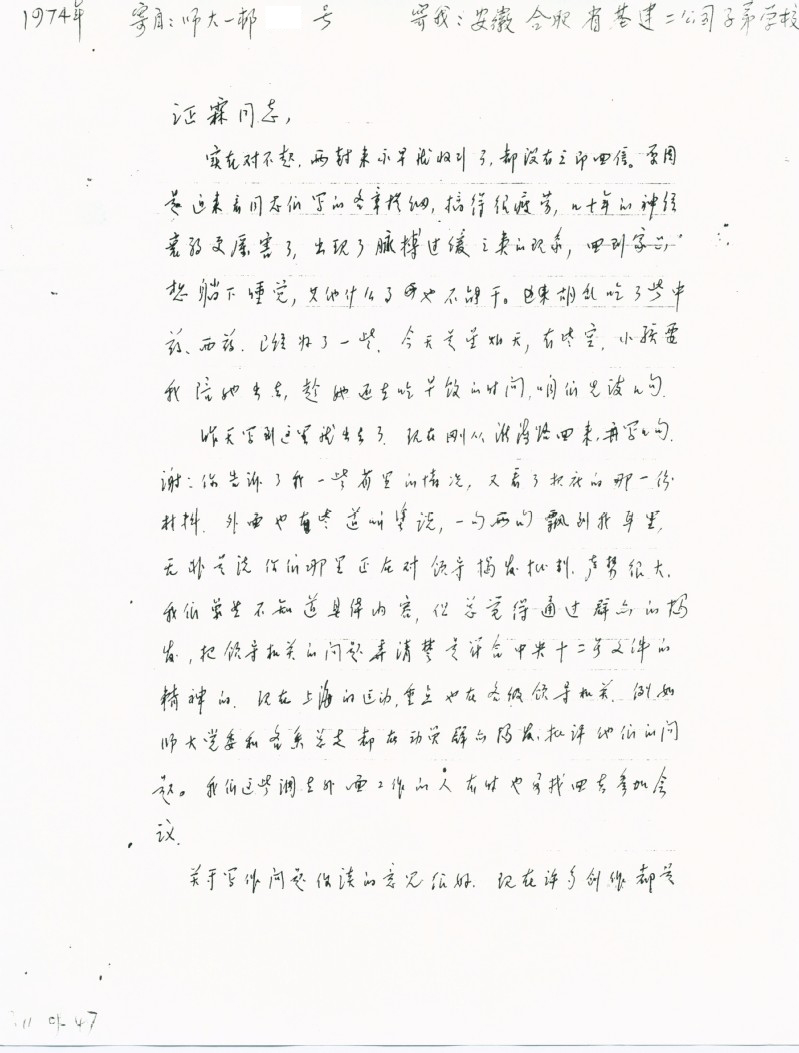 1974年 寄自：师大一邨 号 寄我：安徽合肥省基建二公司子弟学校
证霖同志，
实在对不起，两封来示早就收到了，都没有立即回信。原因
是近来看同志们写的各章提纲，搞得很疲劳，几十年的神经
衰弱更厉害了，出现了脉搏过缓之类的现象，回到家只
想躺下睡觉，其他什么事也不能干。近来胡乱吃了些中
药、西药，已经好了一些。今天是星期天，有些空，小孩要
我陪她出去，趁她还在吃早饭的时间，咱们先谈几句。
昨天写到这里我出去了，现在刚从淮海路回来，再写几句。
谢谢你告诉了我一些省里的情况，又看了抄在的那一份
材料，外面也有些道听途说，一句两句飘到我耳里，
无非是说你们那里正在对领导揭发批判，声势很大。
我们虽然不知道具体内容，但总觉得通过群众的揭
发，把领导机关的问题弄清楚是符合中央十二号文件的
精神的。现在上海的运动，重点也在各级领导机关，例如
师大党委和各系总支都在动员群众揭发、批评他们的问
题。我们这些调在外面工作的人有时也要找回去参加会
议。
关于写作问题你谈的意见很好。现在许多创作都是